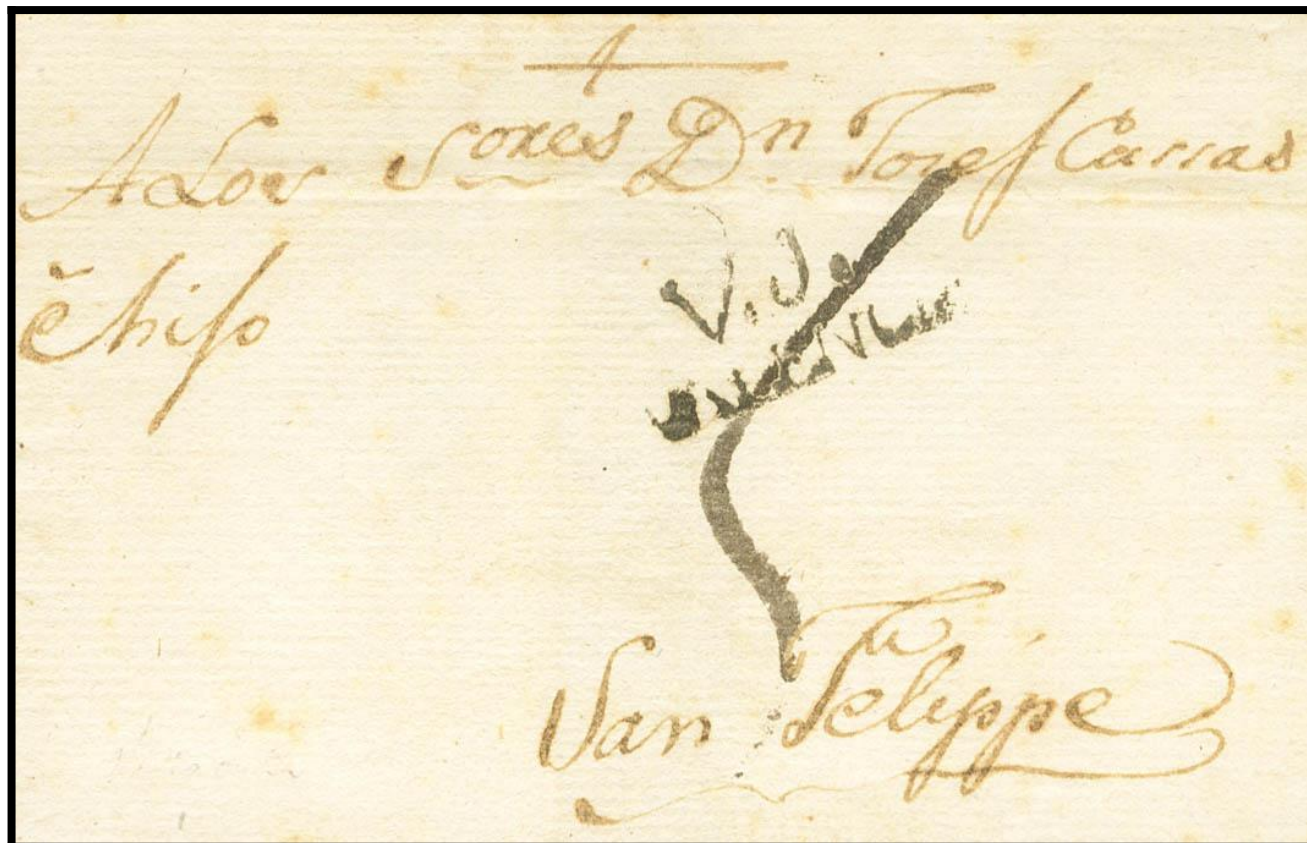 A Los Sores Dn Josef Carras
ê hijo
V. J.
San Felippe